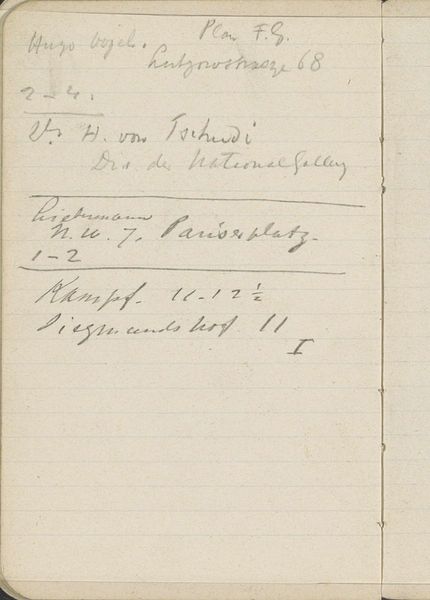 Hugo Vogel. Plan F. 9.
Lutzowstrasze 68
2-4.
Dr H. von Tschudi
Dir. der National Gallery
Liebermann
N.W. 7. Pariserplatz.
1-2
Kampf. 11-12 ½
Siegmundshof 11
I